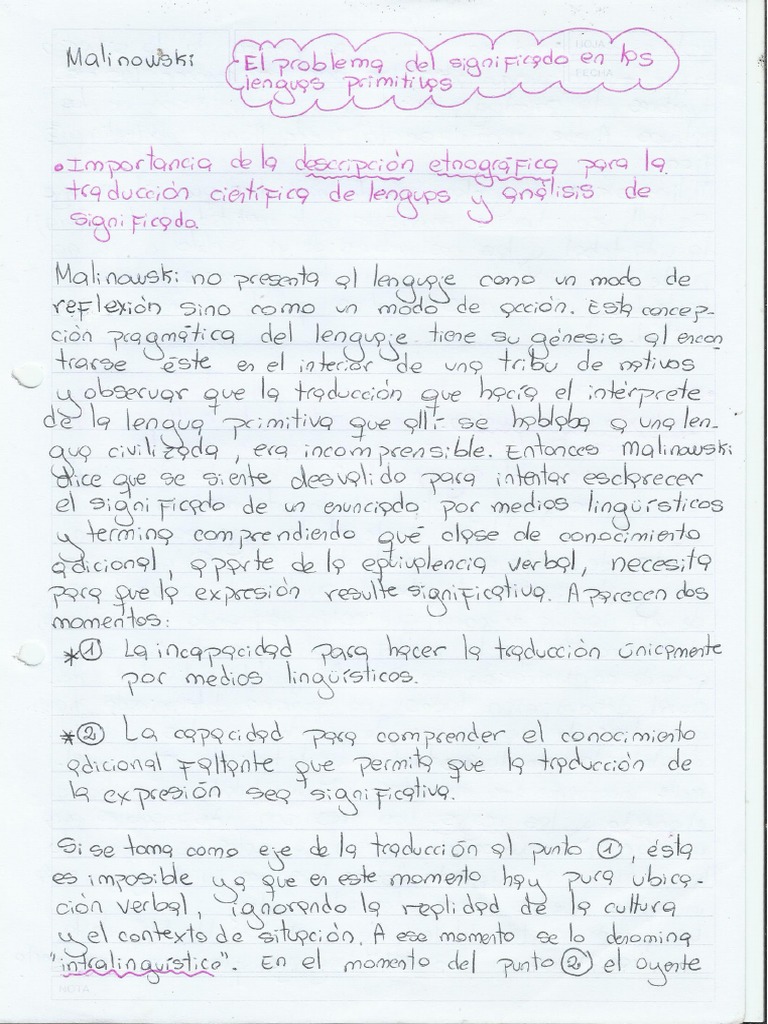 Malinowski
El problema del significado en las
lenguas primitivas
• Importancia de la descripción etnográfica para la
traducción científica de lenguas y análisis de
significado.
Malinowski no presenta al lenguaje como un modo de
reflexión sino como un modo de acción. Esta concep-
ción pragmática del lenguaje tiene su génesis al encon
trarse éste en el interior de una tribu de nativos
y observar que la traducción que hacía el intérprete
de la lengua primitiva que allí se hablaba a una len-
gua civilizada, era incomprensible. Entonces Malinowski
dice que se siente desvalido para intentar esclarecer
el significado de un enunciado por medios lingüísticos
y termina comprendiendo qué clase de conocimiento
adicional, aparte de la equivalencia verbal, necesita
para que la expresión resulte significativa. Aparecen dos
momentos:
*① La incapacidad para hacer la traducción únicamente
por medios lingüísticos.
*② La capacidad para comprender el conocimiento
adicional faltante que permita que la traducción de
la expresión sea "significativa."
Si se toma como eje de la traducción al punto ①, ésta
es imposible ya que en este momento hay pura ubica-
ción verbal, ignorando la realidad de la cultura
y el contexto de situación. A ese momento se lo denomina
"intralinguístico". En el momento del punto ② el oyente